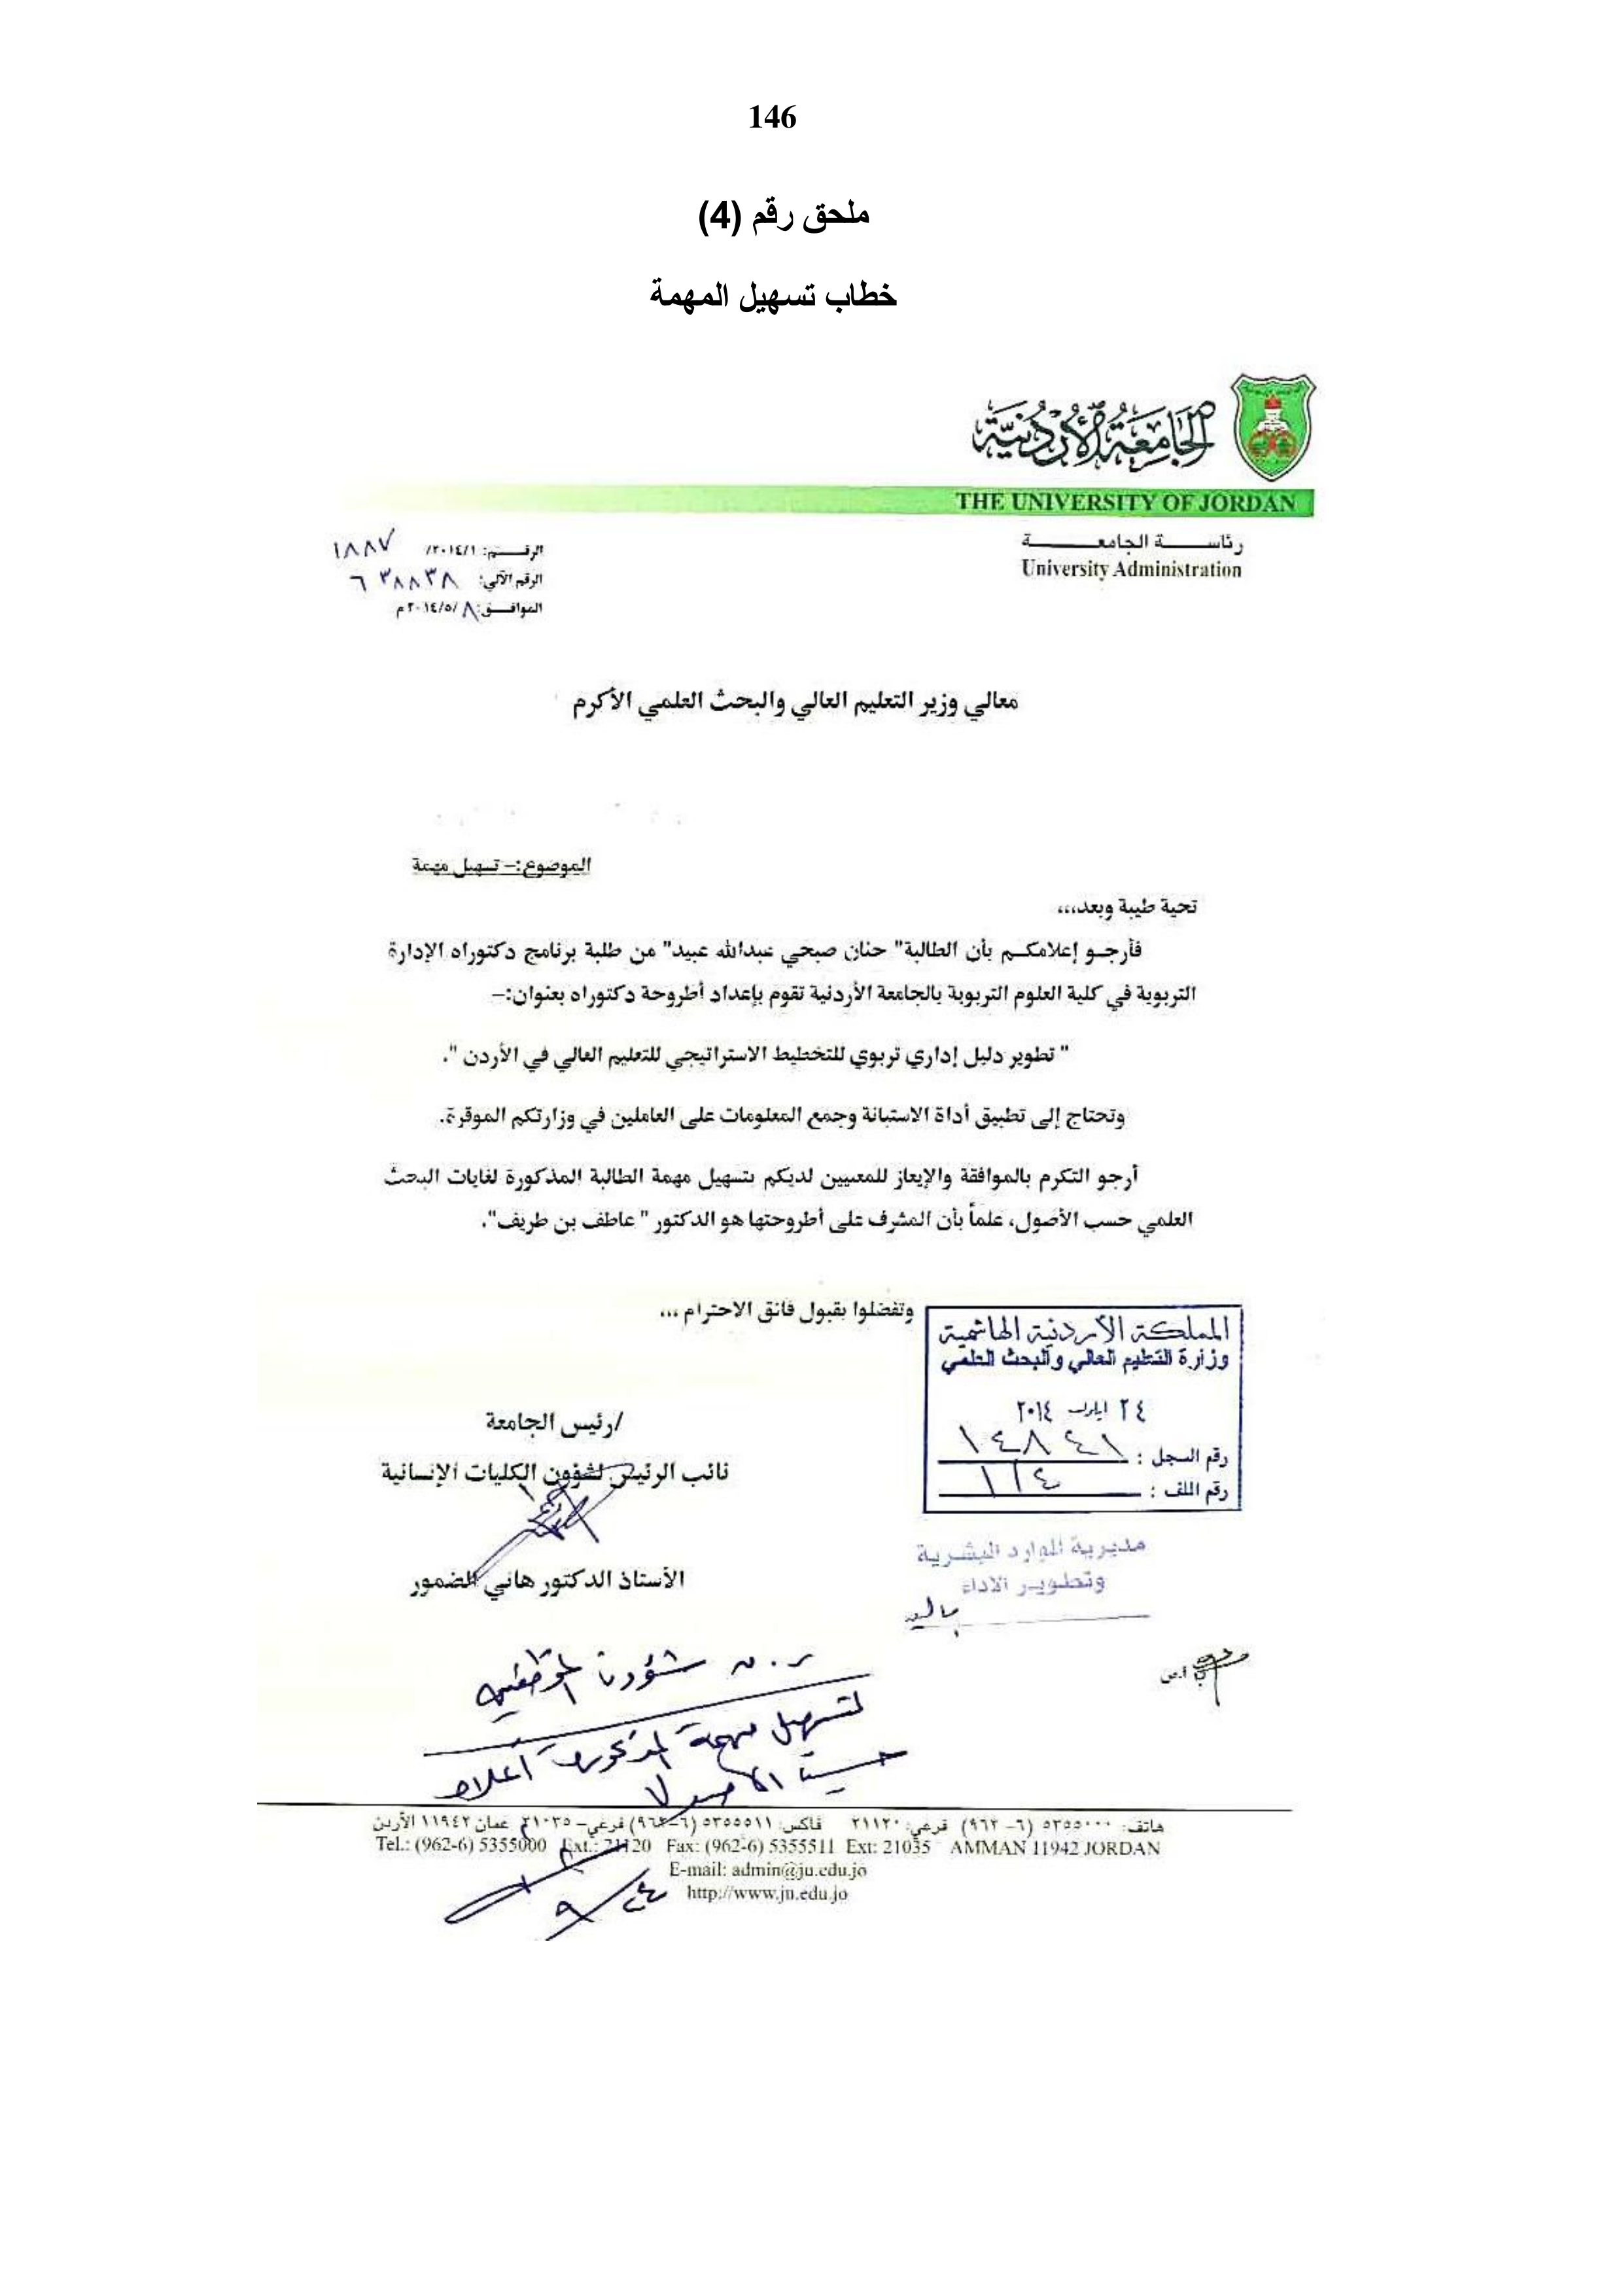 146
ملحق رقم (4)
خطاب تسهيل المهمة
الجامعة الأردنية
THE UNIVERSITY OF JORDAN
رئاسة الجامعة
University Administration
الرقم: ٢٠١٤/١/ ١٨٨٧
الرقم الآلي: ٦٣٨٨٣٨
الموافق: ٢٠١٤/٥/٨ م
معالي وزير التعليم العالي والبحث العلمي الأكرم
الموضوع:– تسهيل مهمة
تحية طيبة وبعد،،،
فأرجو إعلامكم بأن الطالبة" حنان صبحي عبدالله عبيد" من طلبة برنامج دكتوراه الإدارة
التربوية في كلية العلوم التربوية بالجامعة الأردنية تقوم بإعداد أطروحة دكتوراه بعنوان:–
" تطوير دليل إداري تربوي للتخطيط الاستراتيجي للتعليم العالي في الأردن ".
وتحتاج إلى تطبيق أداة الاستبانة وجمع المعلومات على العاملين في وزارتكم الموقرة.
أرجو التكرم بالموافقة والإيعاز للمعنيين لديكم بتسهيل مهمة الطالبة المذكورة لغايات البحث
العلمي حسب الأصول، علماً بأن المشرف على أطروحتها هو الدكتور " عاطف بن طريف".
وتفضلوا بقبول فائق الاحترام ...
المملكة الأردنية الهاشمية
وزارة التعليم العالي والبحث العلمي
٢٤ ايلول ٢٠١٤
رقم السجل : ١٤٨٤١
رقم الملف : ١/٤
/رئيس الجامعة
نائب الرئيس لشؤون الكليات الإنسانية
الأستاذ الدكتور هاني الضمور
مديرية الموارد البشرية
وتطوير الاداء
ر . م شؤون الموظفين
لتسهيل مهمة المذكورة أعلاه
حسب الأصول
هاتف: ٥٣٥٥٠٠٠ (٦– ٩٦٢) فرعي: ٢١١٢٠ فاكس: ٥٣٥٥٥١١ (٦–٩٦٢) فرعي– ٢١٠٣٥ عمان ١١٩٤٢ الأردن
Tel.: (962-6) 5355000 Ext.: 21120 Fax: (962-6) 5355511 Ext: 21035 AMMAN 11942 JORDAN
E-mail: admin@ju.edu.jo
http://www.ju.edu.jo
٩/٢٤